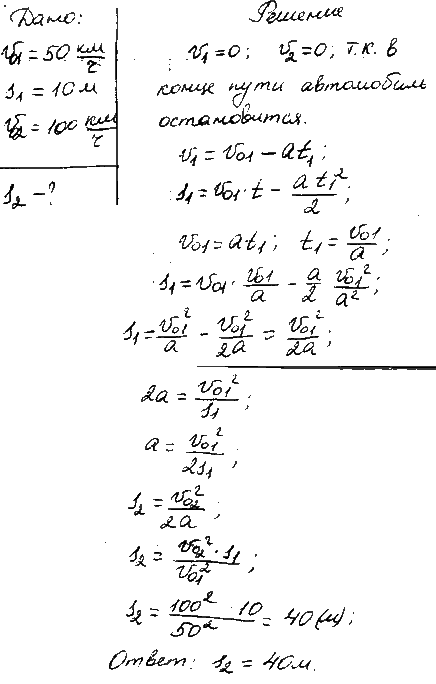 Дано:
v₀₁ = 50 км/ч
s₁ = 10 м
v₀₂ = 100 км/ч
s₂ - ?
Решение
v₁ = 0; v₂ = 0; т.к. в
конце пути автомобиль
остановится.
v₁ = v₀₁ - at₁;
s₁ = v₀₁·t - at₁²/2;
v₀₁ = at₁; t₁ = v₀₁/a;
s₁ = v₀₁ · v₀₁/a - a/2 v₀₁²/a²;
s₁ = v₀₁²/a - v₀₁²/2a = v₀₁²/2a;
2a = v₀₁²/s₁;
a = v₀₁²/2s₁;
s₂ = v₀₂²/2a;
s₂ = v₀₂²·s₁/v₀₁²;
s₂ = 100²·10/50² = 40 (м);
Ответ: s₂ = 40 м.